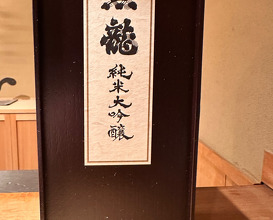 黒龍
純米大吟醸